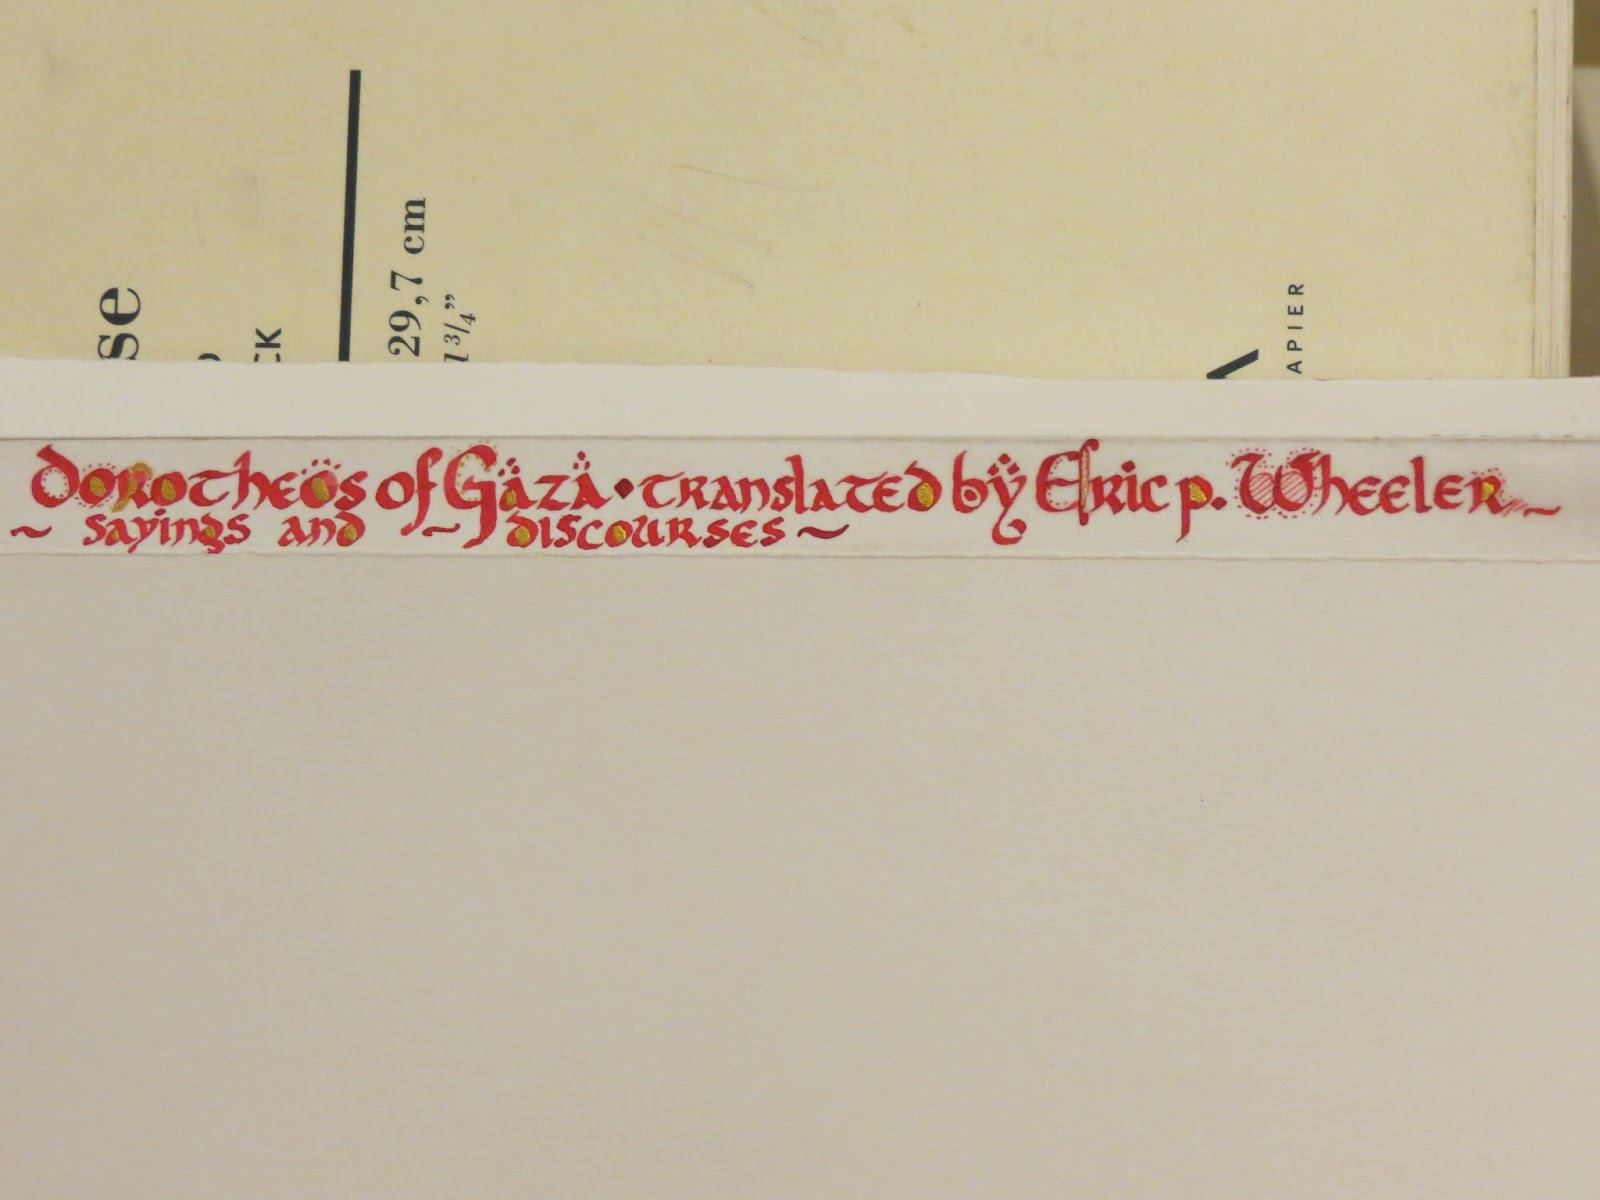 se
CK
29,7 cm
1 3/4”
APIER
dorotheos of Gaza • translated by Eric p. Wheeler ~
~ sayings and ~ discourses ~